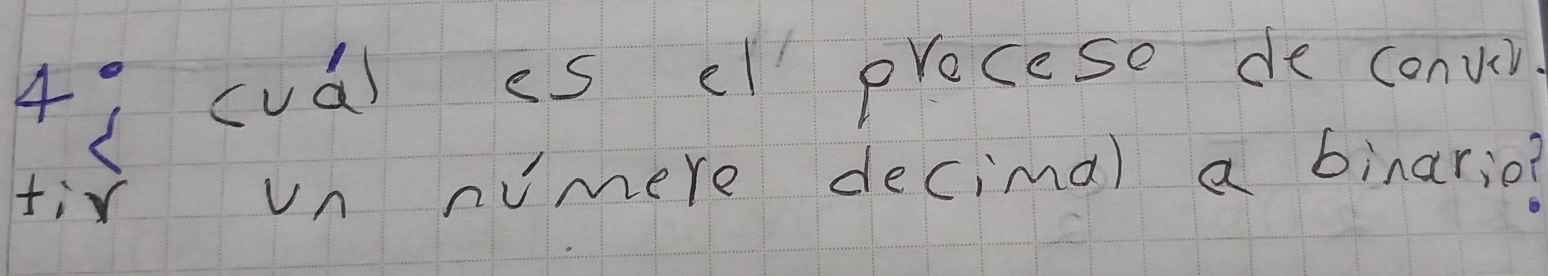 4¿ cuál es el proceso de conver.
tir un número decimal a binario?